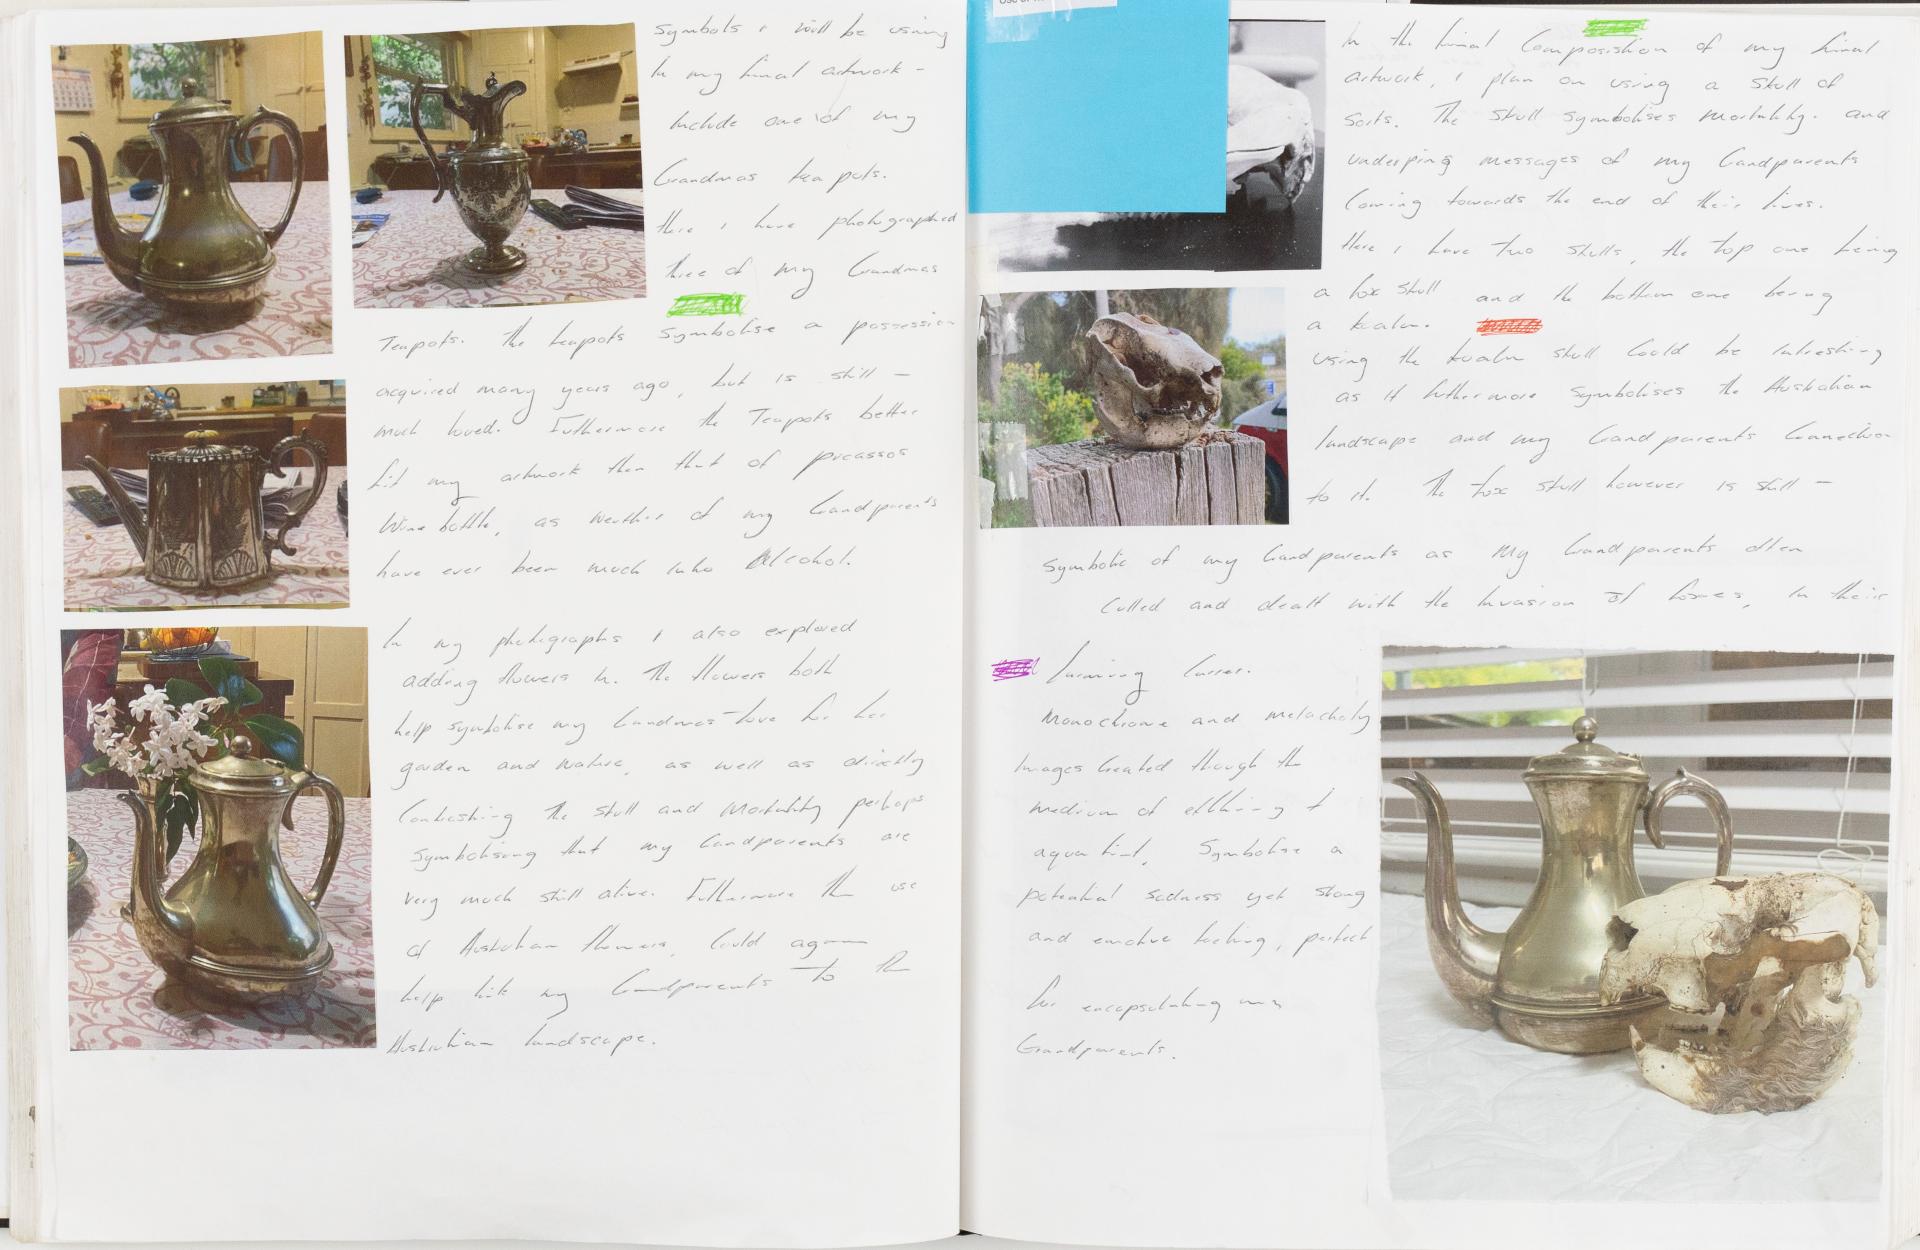 Symbols i will be using
in my final artwork -
include one of my
Grandmas tea pots.
Here i have photographed
three of my Grandmas
Teapots. The teapots symbolise a possession
acquired many years ago, but is still -
much loved. Futhermore the Teapots better
fit my artwork then that of picassos
Wine bottle, as neither of my Grandparents
have ever been much into Alcohol.
In my photographs i also explored
adding flowers in. The flowers both
help symbolise my Grandmas love for her
garden and nature, as well as directly
Contrasting the skull and mortality perhaps
symbolising that my Grandparents are
very much still alive. Futhermore the use
of Australian flowers, Could again
help link my Grandparents to the
Australian landscape.
In the final Composistion of my final
artwork, i plan on using a skull of
sorts. The skull symbolises mortality. and
underping messages of my Grandparents
Coming towards the end of their lives.
Here i have two skulls, the top one being
a fox skull and the bottom one being
a koala.
using the koala skull Could be intresting
as it futhermore symbolises the Australian
landscape and my Grandparents Connection
to it. The fox skull however is still -
symbolic of my Grandparents as my Grandparents often
Culled and dealt with the invasion of foxes, in their
farming Career.
Monochrome and melacholy
images Created though the
medium of ethhing +
aqua tint, Symbolise a
potential sadness yet stong
and emotive feeling, perfect
for encapsulating my
Grandparents.